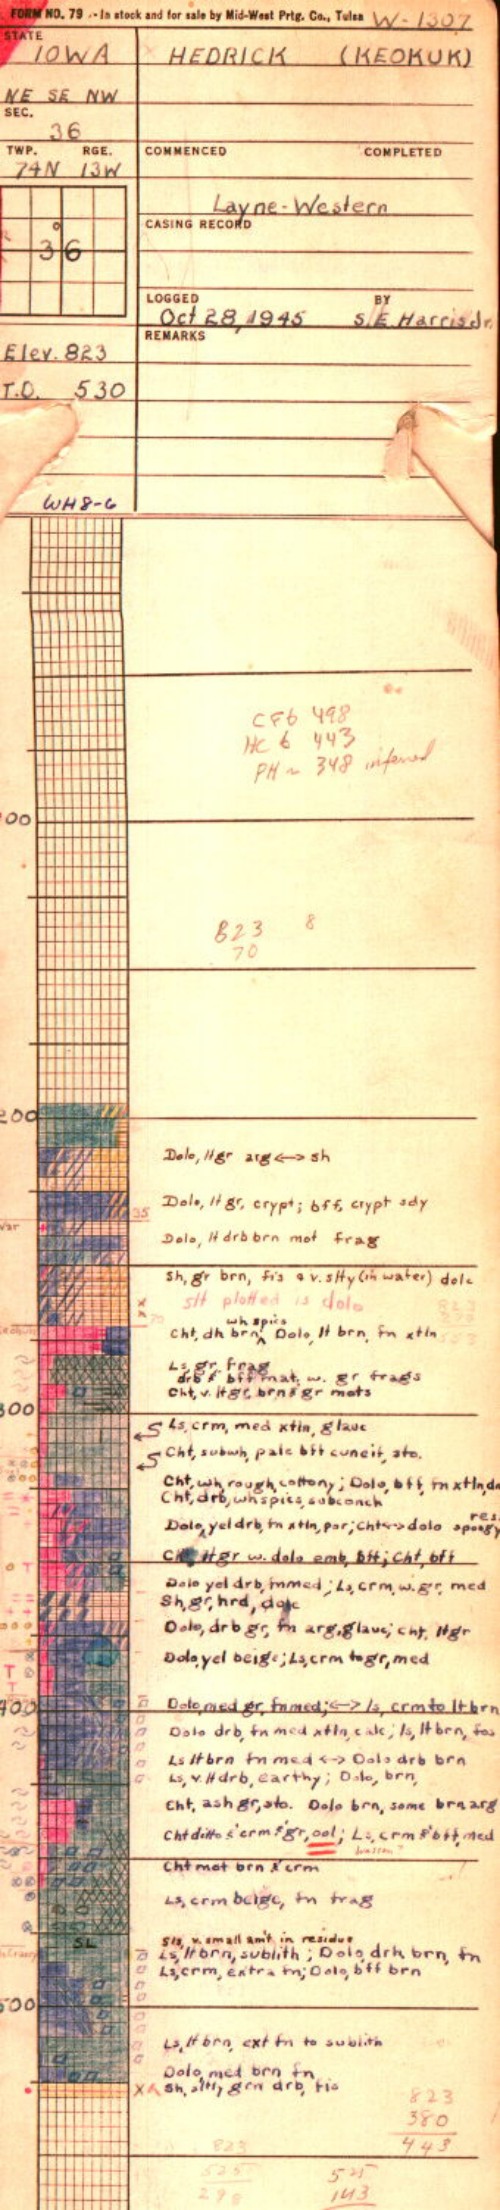 FORM NO. 79 - In stock and for sale by Mid-West Prtg. Co., Tulsa W-1307
STATE
IOWA HEDRICK (KEOKUK)
NE SE NW
SEC.
36
TWP. RGE. COMMENCED COMPLETED
74N 13W
Layne-Western
CASING RECORD
36
LOGGED BY
Oct 28, 1945 S.E. Harris Jr.
REMARKS
Elev. 823
T.D. 530
WH8-6
CF6 498
HC 6 443
PH ~ 348 inferred
00
823 8
70
200
Dolo, ltgr arg <-> sh
Dolo, ltgr, crypt; bff, crypt sdy
35
Dolo, lt drb brn mot frag
Sh, gr brn, fis & v. slty (in water) dolc
slt plotted is dolo
wh spics
Cht, dh brn ^ Dolo, lt brn, fn xtln
Ls, gr, frag
drb & bff mat. w. gr frags
Cht, v. ltgr, brn & gr mots
300
Ls, crm, med xtln, glauc
Cht, subwh, pale bff cuneif, sto.
Cht, wh, rough, cottony; Dolo, bff, fn xtln, d
Cht, drb, wh spics, subconch
res.
Dolo, yel drb, fn xtln, por; Cht <-> dolo spongy
Cht, ltgr w. dolo emb, bff; Cht, bff
Dolo yel drb, fnmed; Ls, crm, w. gr, med
Sh, gr, hrd, dolc
Dolo, drb gr, fn arg, glauc; cht, ltgr
Dolo, yel beige; Ls, crm to gr, med
400
Dolo, med gr, fnmed; <-> ls, crm to lt brn
Dolo drb, fn med xtln, calc; ls, lt brn, fos
Ls lt brn fn med <-> Dolo drb brn
Ls, v. lt drb, earthy; Dolo, brn,
Cht, ash gr, sto. Dolo brn, some brn arg
Cht ditto & crm & gr, ool; Ls, crm & bff, med
Cht mot brn & crm
Ls, crm beige, fn frag
SL
Sls, v. small am't in residue
Ls, lt brn, sublith; Dolo, drk brn, fn
Ls, crm, extra fn; Dolo, bff brn
500
Ls, lt brn, ext fn to sublith
Dolo, med brn fn
Sh, slty grn drb, fis
823
380
443
823 525
525 143
298